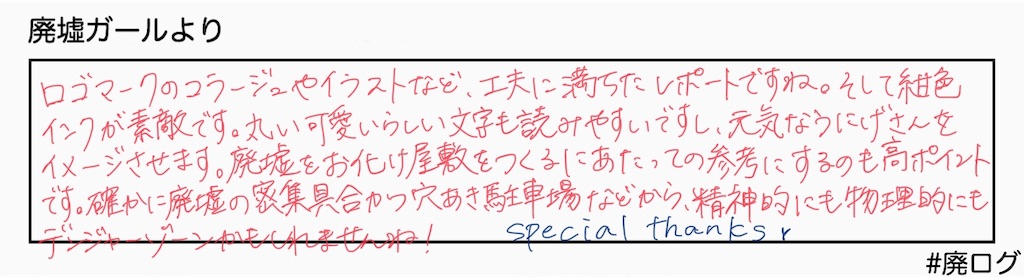 廃墟ガールより
ロゴマークのコラージュやイラストなど、工夫に満ちたレポートですね。そして紺色
インクが素敵です。丸い可愛いらしい文字も読みやすいですし、元気なうにげさんを
イメージさせます。廃墟をお化け屋敷をつくるにあたっての参考にするのも高ポイント
です。確かに廃墟の密集具合かつ穴あき駐車場などから、精神的にも物理的にも
デンジャーゾーンかもしれませんね！ special thanks
#廃ログ